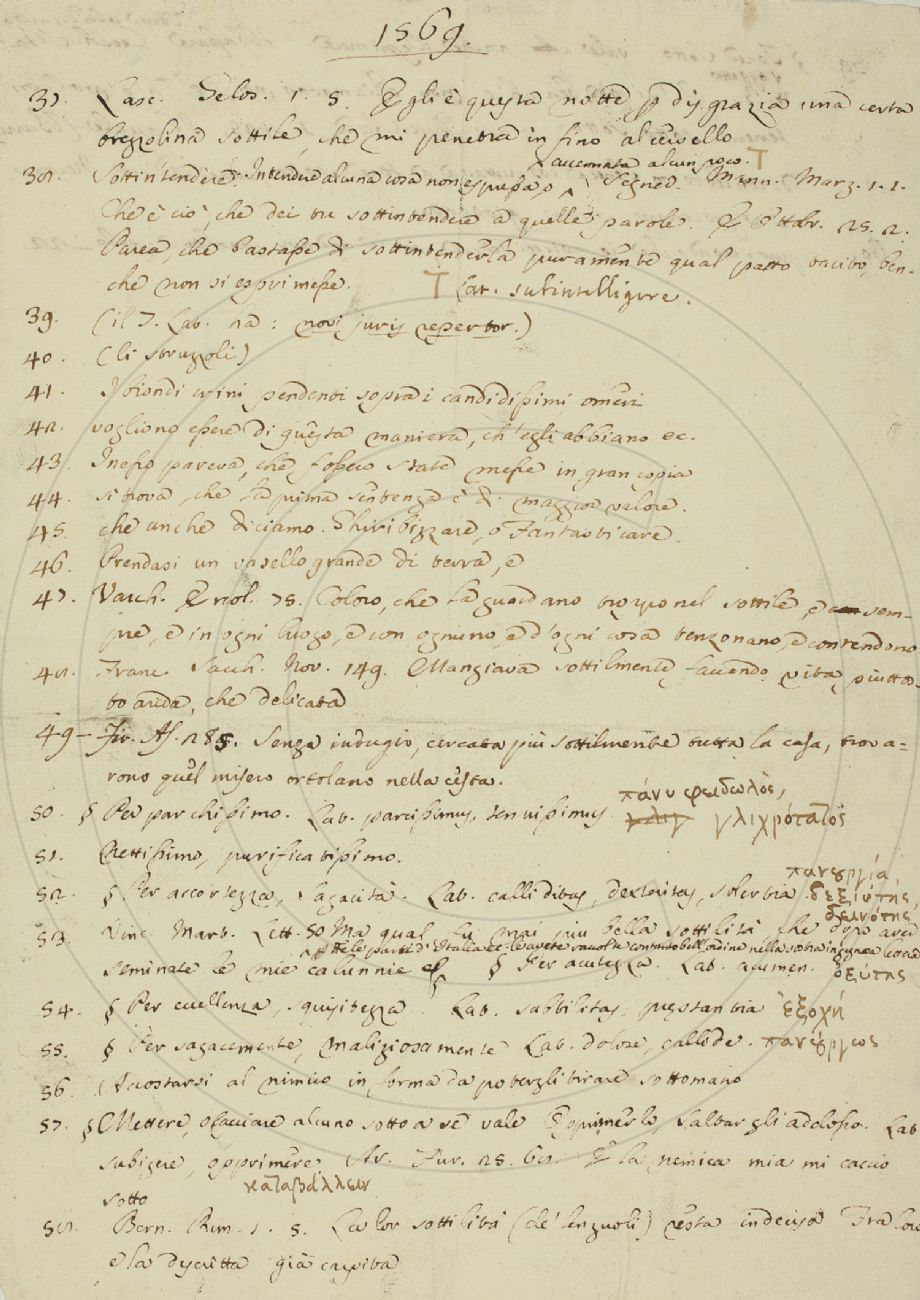 1569.
37. Lasc. Gelos. 1. 5. Egli è questa notte p disgrazia una certa
brezzolina sottile, che mi penetra in fino al cervello
accennata alcun poco. T
38. Sottintendere. Intendere alcuna cosa non espressa, o Segned. Mann. Marz. 1. 1.
Che è ciò, che dei tu sottintendere a quelle parole. E Ottobr. 25. 2.
Parea, che bastasse di sottintenderla puramente qual patto tacito, ben-
che non si esprimesse. T Lat. subintelligere.
39. (il T. Lab. ha: novi juris repertor.)
40. (li struzzoli)
41. I biondi crini pendenti sopra i candidissimi omeri
42. vogliono essere di questa maniera, ch'egli abbiano ec.
43. Inesso pareva, che fossero state messe in gran copia
44. si trova, che la prima sentenza è di maggior valore.
45. che anche diciamo Ghiribizzare, o Fantasticare.
46. Prendasi un vasello grande di terra, e
47. Varch. Ercol. 75. Coloro, che la guardano troppo nel sottile, e sem-
pre, e in ogni luogo, e con ognuno, e d'ogni cosa tenzonano, e contendono
48. Franc. Sacch. Nov. 149. Mangiava sottilmente, facendo vita piutto-
to arida, che delicata
49 - Fir. As. 285. Senza indugio, cercata più sottilmente tutta la casa, trova=
rono quel misero ortolano nella cesta.
πάνυ φειδωλὸς,
50. § Per parchissimo. Lat. parcissimus, tenuissimus γλιχρότατος
51. Nettissimo, purificatissimo.
πανουργία,
52. § Per accortezza, sagacità. Lat. calliditas, dexteritas, solertia δεξιότης,
δεινότης
53. Vinc. Mart. Lett. 50 Ma qual fu mai più bella sottilità, che dopo aver
seminate le mie calunnie § Per acutezza. Lat. acumen. ὀξύτης
54. § Per eccellenza, squisitezza. Lat. subtilitas, prestantia ἐξοχή
55. § Per sagacemente, maliziosamente Lat. dolose, callide. πανούργως
56. (Accostarsi al nimico in forma da potergli tirare sottomano
57. § Mettere, o cacciare alcuno sotto a se vale Opprimerlo, Saltargli adosso. Lat
subigere, opprimere. Ar. Fur. 25. 68. E la nemica mia mi caccio
sotto καταβάλλειν
58. Bern. Rim. 1. 5. La lor sottilità (de' lenzuoli) resta indecisa Fra loro
e la descritta già carpita